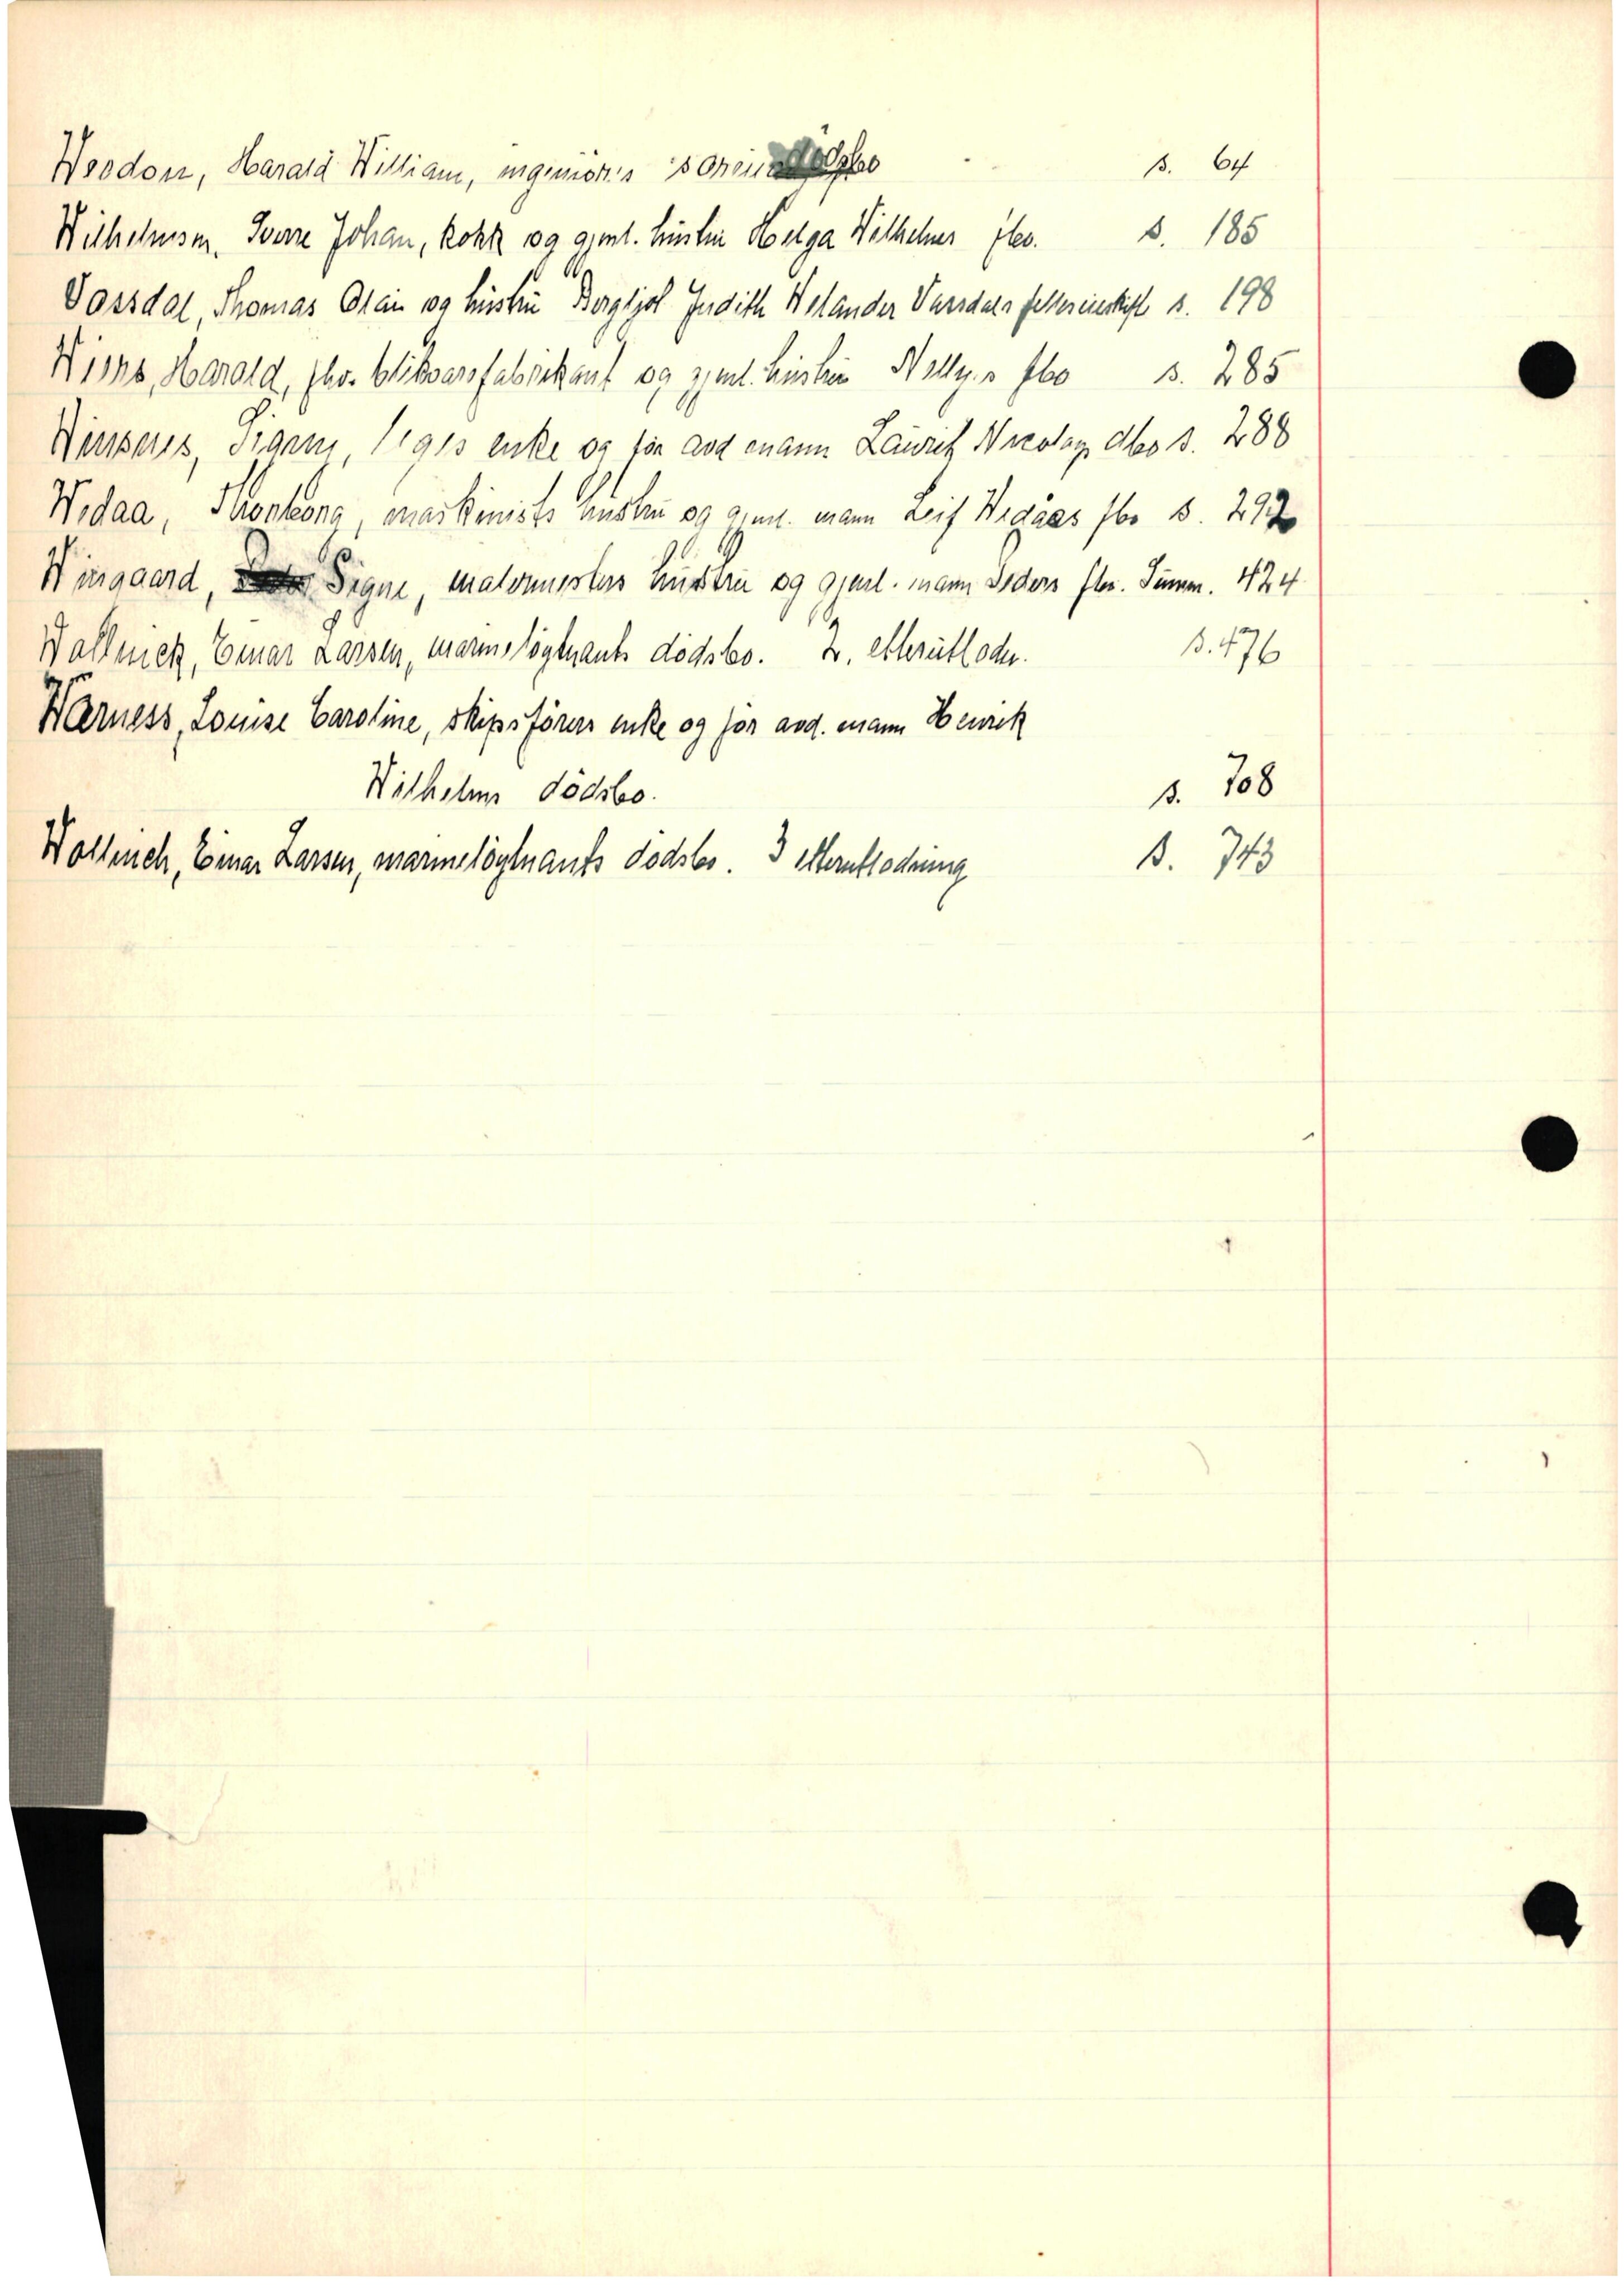 Woodon, Harald William, ingeniör's dödsbo s. 64
Wilhelmsen, Sverre Johan, kokk og gjenl. hustru Helga Wilhelmes fbo. s. 185
Vossdal, Thomas Olai og hustru Bergljot Judith Welander Vossdals felleseieskift s. 198
Harald, fhv. blikvarefabrikant og gjenl. hustru Nelly.s fbo s. 285
enke og för avd mann Lauritz Nicolay dbo s. 288
Wedaa, maskinists hustru og gjenl. mann Leif Wedaas fbo s. 292
Wingaard, Signe, malermesters hustru og gjenl. mann Peders fbo. Summ. 424
Wallnick, Einar Larsen, marinelöytnants dödsbo. 2. etterutlodn. s. 476
Wærness, Louise Caroline, skipsförers enke og för avd. mann Henrik
Wilhelms dödsbo. s. 708
Wallnich, Einar Larsen, marinelöytnants dödsbo. 3 etterutlodning s. 743